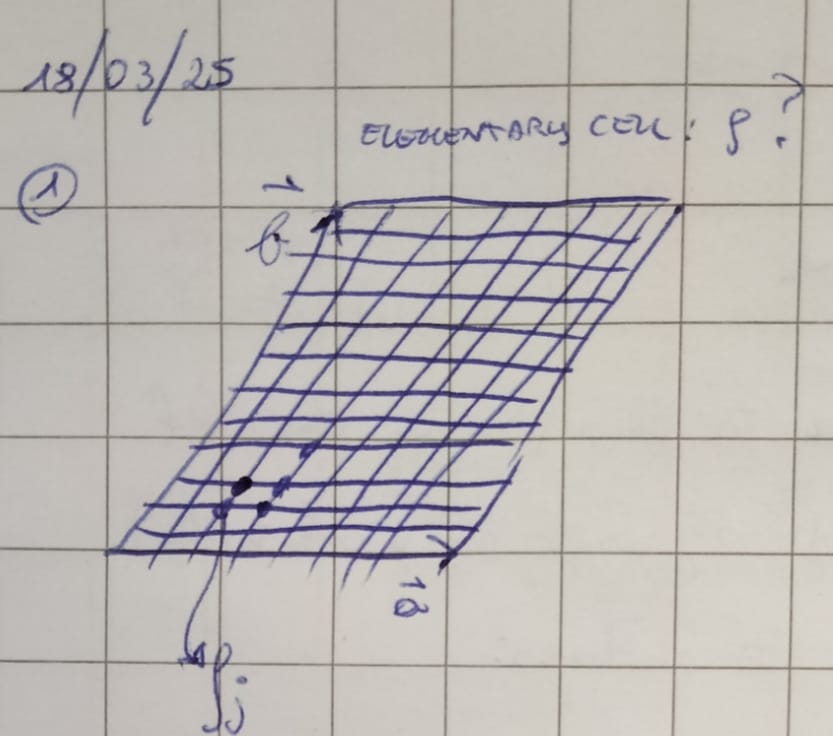 18/03/25
ELEMENTARY CELL: ρ?
①
b
a
ρj